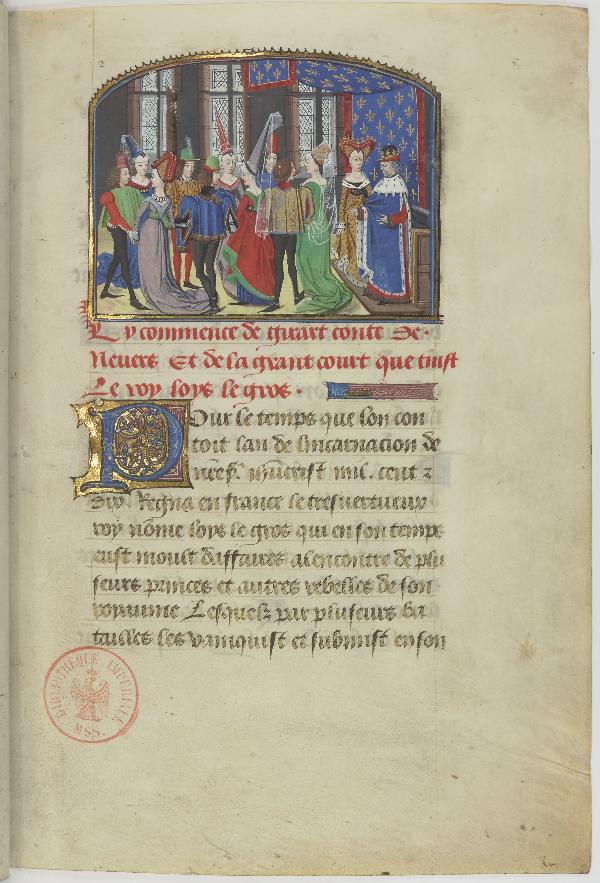 Cy commence de girart conte de
Nevers Et de la grant court que tinst
Le roy loys le gros
Pour le temps que lon con
toit lan de lincarnacion de
nr̃e sr̃ ihũcrist mil. cent z
dix Regna en france le tresvertueux
roy nõme loys le gros qui en son temps
eust moult daffaires alencontre de plu
seurs princes et autres rebelles de son
royaume Lesquelz par pluseurs ba
tailles les vainquist et submist en son
BIBLIOTHEQUE IMPERIALE
MSS.